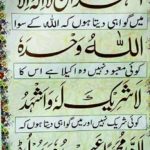 اَشْهَدُ اَنْ لَّا اِلٰهَ اِلَّا
میں گواہی دیتا ہوں کہ اللہ کے سوا
اللّٰهُ وَحْدَهٗ
کوئی معبود نہیں وہ اکیلا ہے اس کا
لَا شَرِيْكَ لَهٗ وَاَشْهَدُ
کوئی شریک نہیں اور میں گواہی دیتا ہوں کہ
اَنَّ مُحَمَّدًا عَبْدُهٗ وَ